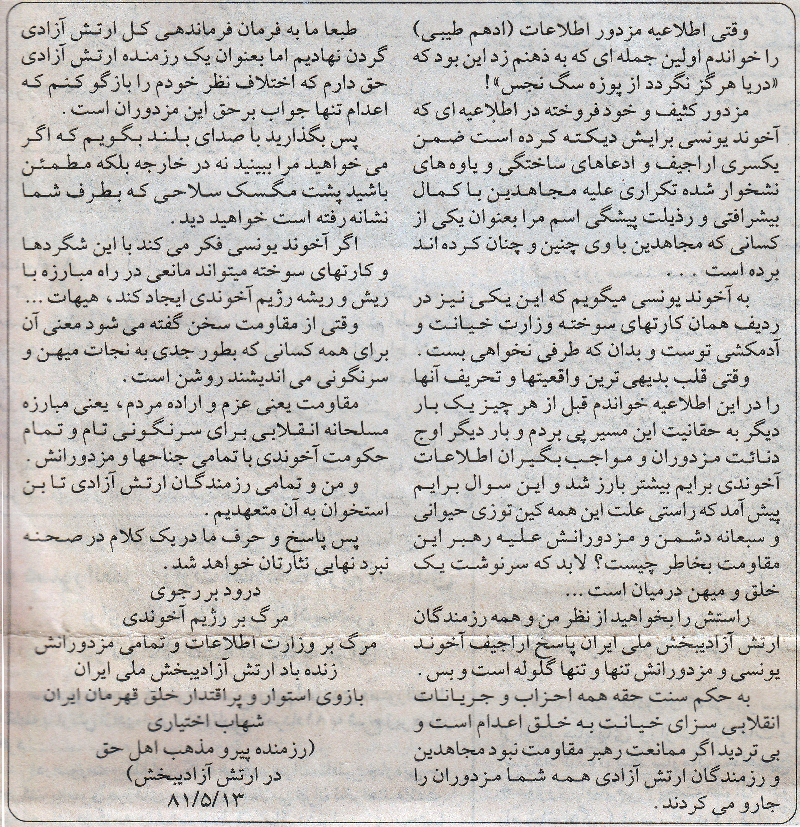 وقتی اطلاعیه مزدور اطلاعات (ادهم طیبی)
را خواندم اولین جمله ای که به ذهنم زد این بود که
«دریا هرگز نگردد از پوزه سگ نجس»!
مزدور کثیف و خودفروخته در اطلاعیه ای که
آخوند یونسی برایش دیکته کرده است ضمن
یکسری اراجیف و ادعاهای ساختگی و یاوه های
نشخوار شده تکراری علیه مجاهدین با کمال
بیشرافتی و رذیلت پیشگی اسم مرا بعنوان یکی از
کسانی که مجاهدین با وی چنین و چنان کرده اند
برده است . . . .
به آخوند یونسی میگویم که این یکی نیز در
ردیف همان کارتهای سوخته وزارت خیانت و
آدمکشی توست و بدان که طرفی نخواهی بست .
وقتی قلب بدیهی ترین واقعیتها و تحریف آنها
را در این اطلاعیه خواندم قبل از هر چیز یک بار
دیگر به حقانیت این مسیر پی بردم و بار دیگر اوج
دنائت مزدوران و مواجب بگیران اطلاعات
آخوندی برایم بیشتر بارز شد و این سوال برایم
پیش آمد که راستی علت این همه کین توزی حیوانی
و سبعانه دشمن و مزدورانش علیه رهبر این
مقاومت بخاطر چیست؟ لابد که سرنوشت یک
خلق و میهن درمیان است ...
راستش را بخواهید از نظر من و همه رزمندگان
ارتش آزادیبخش ملی ایران پاسخ اراجیف آخوند
یونسی و مزدورانش تنها و تنها گلوله است و بس .
به حکم سنت حقه همه احزاب و جریانات
انقلابی سزای خیانت به خلق اعدام است و
بی تردید اگر ممانعت رهبر مقاومت نبود مجاهدین
و رزمندگان ارتش آزادی همه شما مزدوران را
جارو می کردند .
طبعا ما به فرمان فرماندهی کل ارتش آزادی
گردن نهادیم اما بعنوان یک رزمنده ارتش آزادی
حق دارم که اختلاف نظر خودم را بازگو کنم که
اعدام تنها جواب برحق این مزدوران است .
پس بگذارید با صدای بلند بگویم که اگر
می خواهید مرا ببینید نه در خارجه بلکه مطمئن
باشید پشت مگسک سلاحی که بطرف شما
نشانه رفته است خواهید دید .
اگر آخوند یونسی فکر می کند با این شگردها
و کارتهای سوخته میتواند مانعی در راه مبارزه با
ریش و ریشه رژیم آخوندی ایجاد کند، هیهات ...
وقتی از مقاومت سخن گفته می شود معنی آن
برای همه کسانی که بطور جدی به نجات میهن و
سرنگونی می اندیشند روشن است .
مقاومت یعنی عزم و اراده مردم، یعنی مبارزه
مسلحانه انقلابی برای سرنگونی تام و تمام
حکومت آخوندی با تمامی جناحها و مزدورانش .
و من و تمامی رزمندگان ارتش آزادی تا بن
استخوان به آن متعهدیم .
پس پاسخ و حرف ما در یک کلام در صحنه
نبرد نهایی نثارتان خواهد شد .
درود بر رجوی
مرگ بر رژیم آخوندی
مرگ بر وزارت اطلاعات و تمامی مزدورانش
زنده باد ارتش آزادیبخش ملی ایران
بازوی استوار و پراقتدار خلق قهرمان ایران
شهاب اختیاری
(رزمنده پیرو مذهب اهل حق
در ارتش آزادیبخش)
۸۱/۵/۱۳